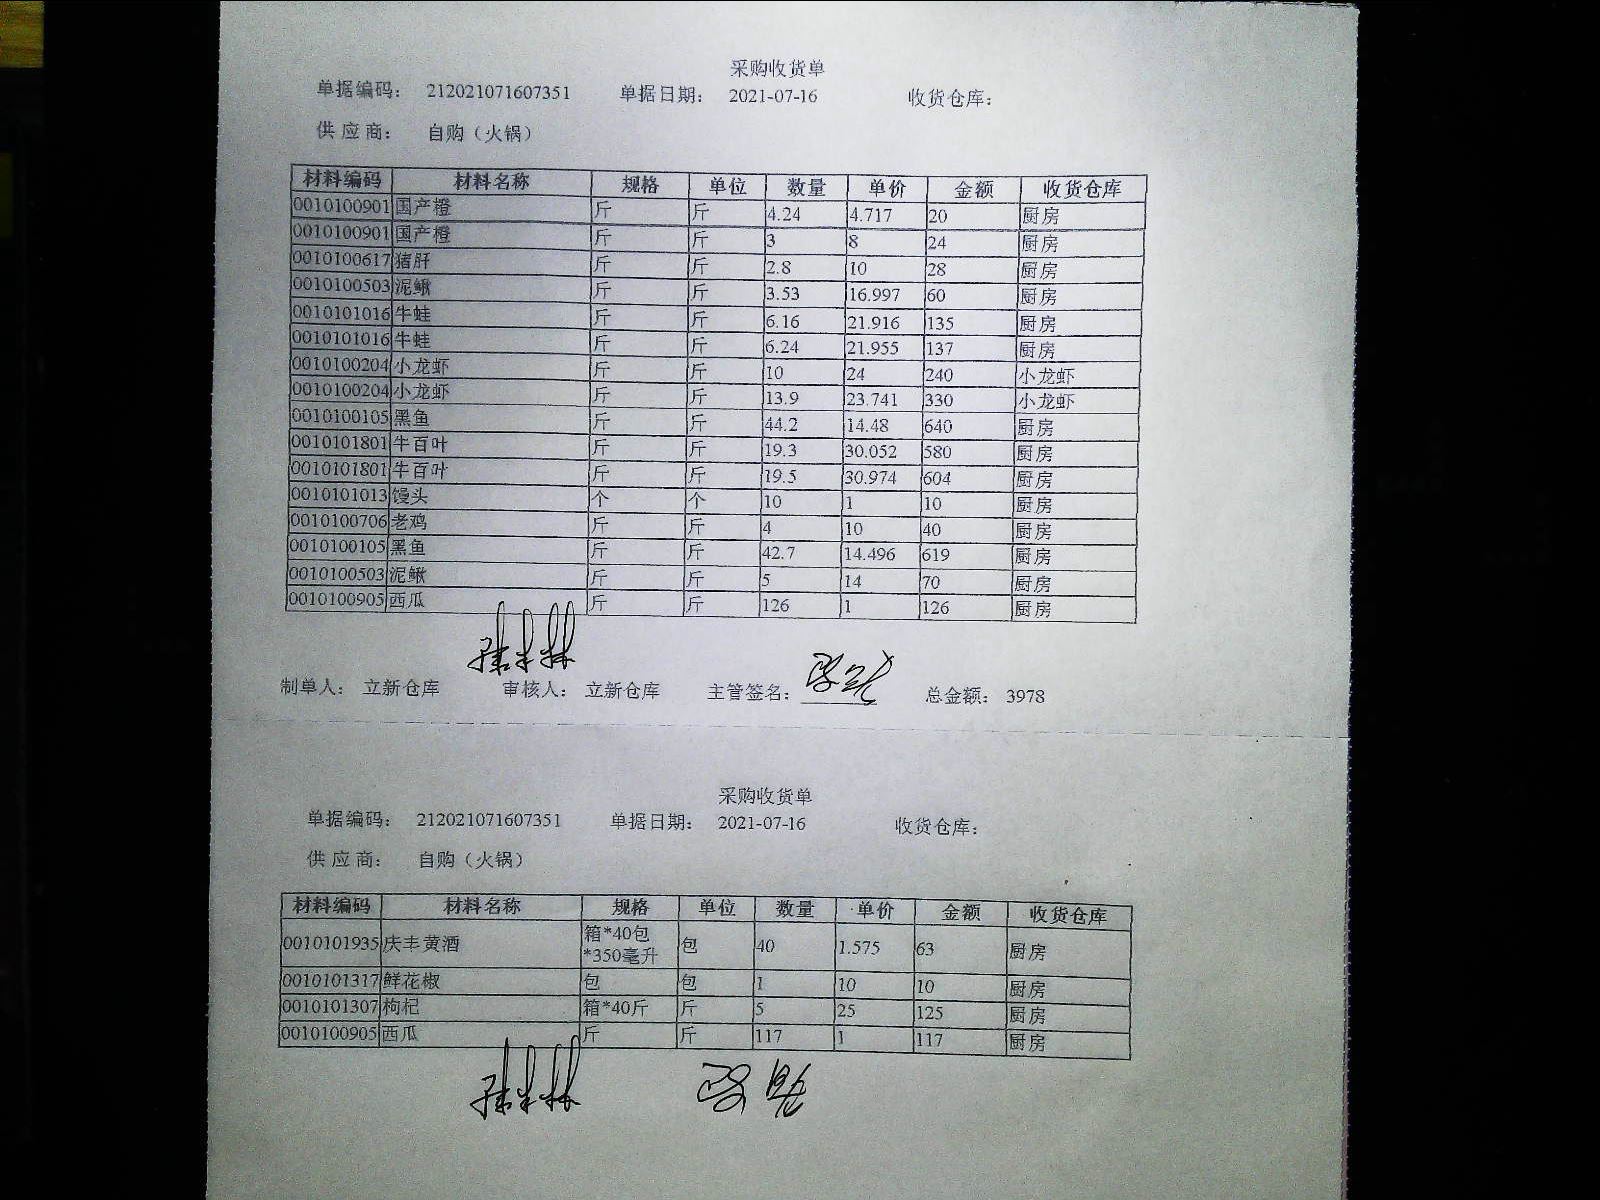 采购收货单
单据编码： 212021071607351 单据日期： 2021-07-16 收货仓库：
供 应 商： 自购（火锅）
材料编码 材料名称 规格 单位 数量 单价 金额 收货仓库
0010100901 国产橙 斤 斤 4.24 4.717 20 厨房
0010100901 国产橙 斤 斤 3 8 24 厨房
0010100617 猪肝 斤 斤 2.8 10 28 厨房
0010100503 泥鳅 斤 斤 3.53 16.997 60 厨房
0010101016 牛蛙 斤 斤 6.16 21.916 135 厨房
0010101016 牛蛙 斤 斤 6.24 21.955 137 厨房
0010100204 小龙虾 斤 斤 10 24 240 小龙虾
0010100204 小龙虾 斤 斤 13.9 23.741 330 小龙虾
0010100105 黑鱼 斤 斤 44.2 14.48 640 厨房
0010101801 牛百叶 斤 斤 19.3 30.052 580 厨房
0010101801 牛百叶 斤 斤 19.5 30.974 604 厨房
0010101013 馒头 个 个 10 1 10 厨房
0010100706 老鸡 斤 斤 4 10 40 厨房
0010100105 黑鱼 斤 斤 42.7 14.496 619 厨房
0010100503 泥鳅 斤 斤 5 14 70 厨房
0010100905 西瓜 斤 斤 126 1 126 厨房
制单人： 立新仓库 审核人： 立新仓库 主管签名： 总金额： 3978
采购收货单
单据编码： 212021071607351 单据日期： 2021-07-16 收货仓库：
供 应 商： 自购（火锅）
材料编码 材料名称 规格 单位 数量 单价 金额 收货仓库
0010101935 庆丰黄酒 箱*40包*350毫升 包 40 1.575 63 厨房
0010101317 鲜花椒 包 包 1 10 10 厨房
0010101307 枸杞 箱*40斤 斤 5 25 125 厨房
0010100905 西瓜 斤 斤 117 1 117 厨房